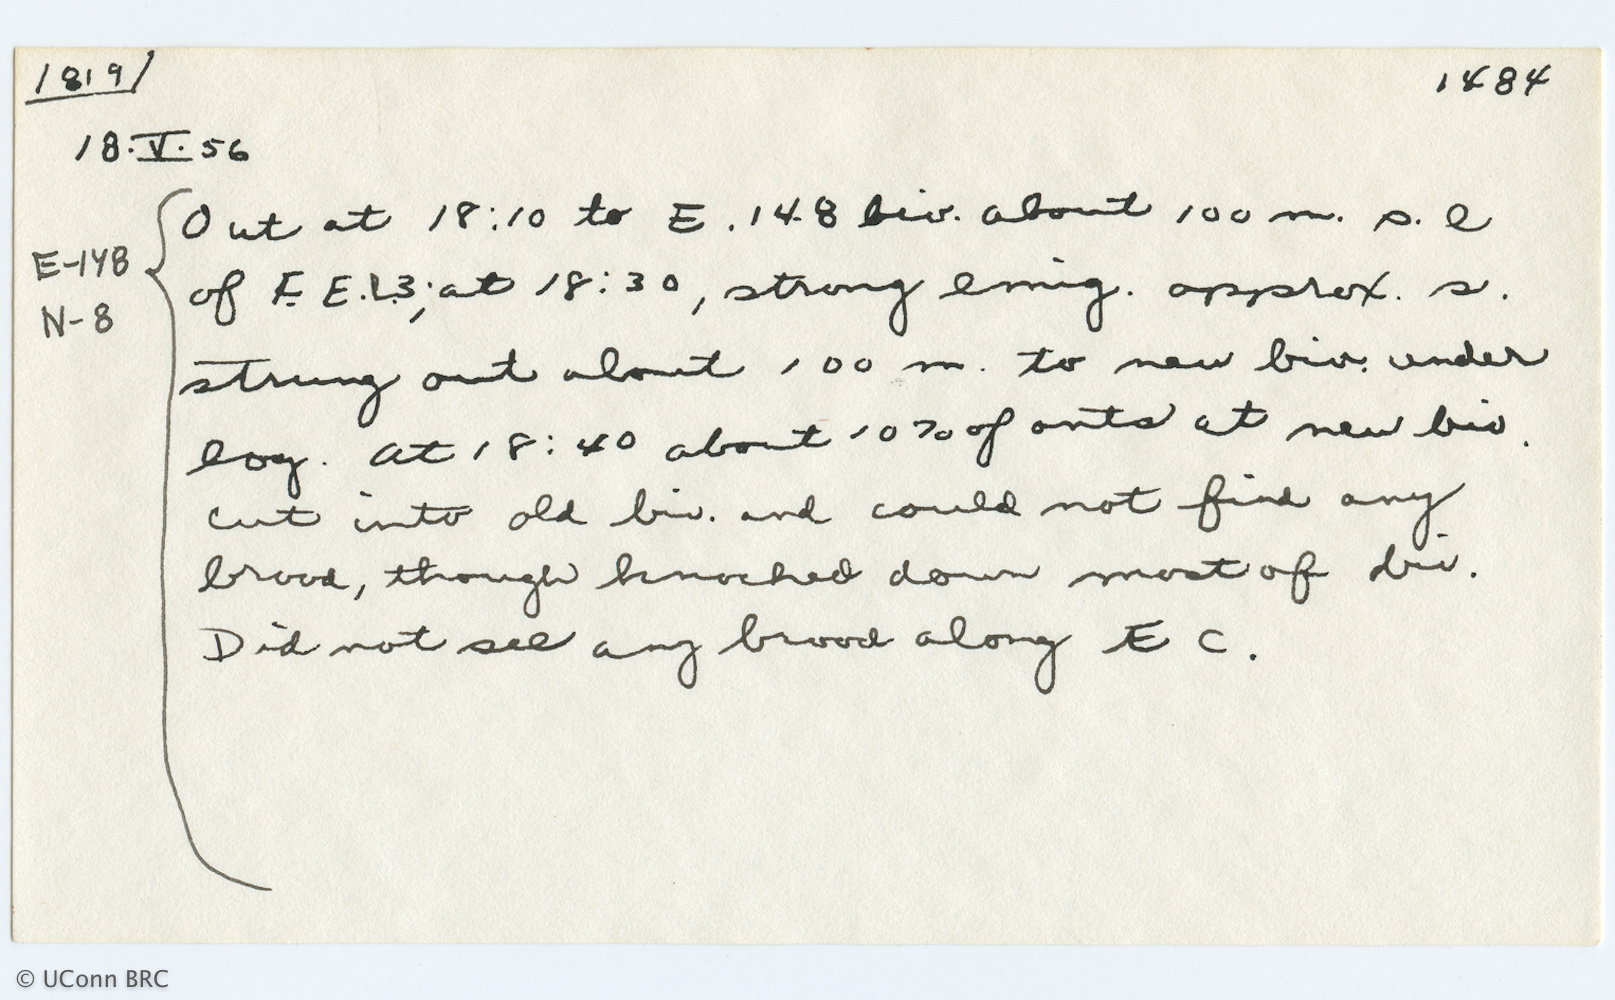 1819
1484
18.V.56
E-148
N-8
Out at 18:10 to E.148 biv. about 100 m. s.e
of F.E.13; at 18:30, strong emig. approx. s.
strung out about 100 m. to new biv. under
log. At 18:40 about 10% of ants at new biv.
Cut into old biv. and could not find any
brood, though knocked down most of biv.
Did not see any brood along E C.
© UConn BRC